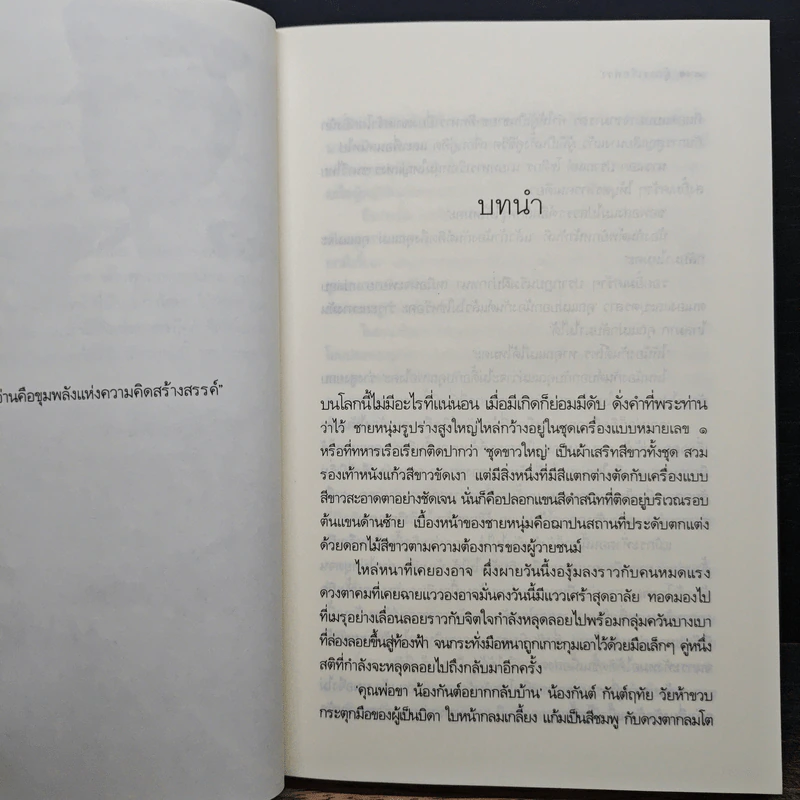 ่านคือขุมพลังแห่งความคิดสร้างสรรค์"
บทนำ
บนโลกนี้ไม่มีอะไรที่แน่นอน เมื่อมีเกิดก็ย่อมมีดับ ดั่งคำที่พระท่าน
ว่าไว้ ชายหนุ่มรูปร่างสูงใหญ่ไหล่กว้างอยู่ในชุดเครื่องแบบหมายเลข ๑
หรือที่ทหารเรือเรียกติดปากว่า 'ชุดขาวใหญ่' เป็นผ้าเสริทสีขาวทั้งชุด สวม
รองเท้าหนังแก้วสีขาวขัดเงา แต่มีสิ่งหนึ่งที่มีสีแตกต่างตัดกับเครื่องแบบ
สีขาวสะอาดตาอย่างชัดเจน นั่นก็คือปลอกแขนสีดำสนิทที่ติดอยู่บริเวณรอบ
ต้นแขนด้านซ้าย เบื้องหน้าของชายหนุ่มคือฌาปนสถานที่ประดับตกแต่ง
ด้วยดอกไม้สีขาวตามความต้องการของผู้วายชนม์
ไหล่หนาที่เคยองอาจ ผึ่งผายวันนี้งองุ้มลงราวกับคนหมดแรง
ดวงตาคมที่เคยฉายแววองอาจมั่นคงวันนี้มีแววเศร้าสุดอาลัย ทอดมองไป
ที่เมรุอย่างเลื่อนลอยราวกับจิตใจกำลังหลุดลอยไปพร้อมกลุ่มควันบางเบา
ที่ล่องลอยขึ้นสู่ท้องฟ้า จนกระทั่งมือหนาถูกเกาะกุมเอาไว้ด้วยมือเล็กๆ คู่หนึ่ง
สติที่กำลังจะหลุดลอยไปถึงกลับมาอีกครั้ง
'คุณพ่อขา น้องกันต์อยากกลับบ้าน' น้องกันต์ กันต์ฤทัย วัยห้าขวบ
กระตุกมือของผู้เป็นบิดา ใบหน้ากลมเกลี้ยง แก้มเป็นสีชมพู กับดวงตากลมโต